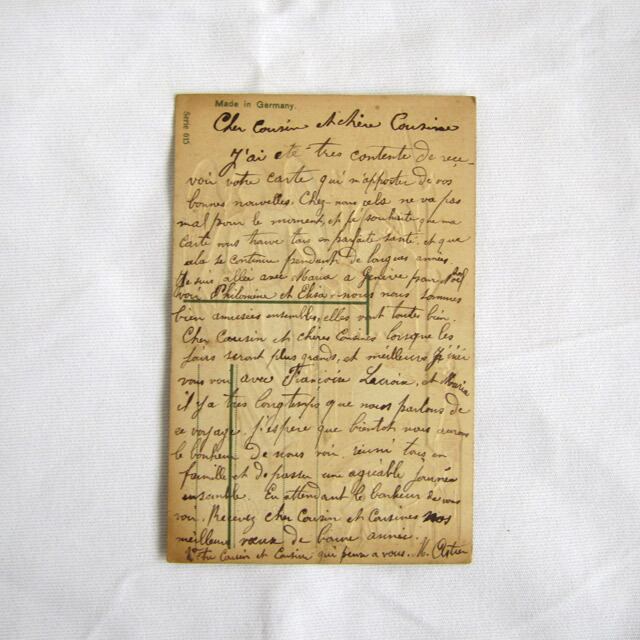 Made in Germany.
Serie 615
Cher Cousin et chère Cousine
J'ai ete tres contente de rece-
voir votre carte qui m'apporter de vos
bonnes nouvelles. Chez-nous cela ne va pas
mal pour le moment, et je souhaite que ma
carte vous trouve tous en parfaite santé et que
cela se continue pendant de longues années
Je suis allée avec Maria a Genève pour Noël
voir Philomène et Elisa, nous nous sommes
bien amusées ensembles, elles vont toutes bien.
Cher Cousin et chères Cousines lorsque les
jours seront plus grands, et meilleurs je irai
vous voir avec Françoise Lacroix, et
il y a très longtemps que nous parlons de
ce voyage, j'espere que bientôt nous aurons
le bonheur de nous voir, réuni tous en
famille et de passer une agréable journée
ensemble. En attendant le bonheur de vous
voir. Recevez cher Cousin et Cousines nos
meilleurs vœux de bonne année.
Cousin et Cousine qui pense a vous. M.